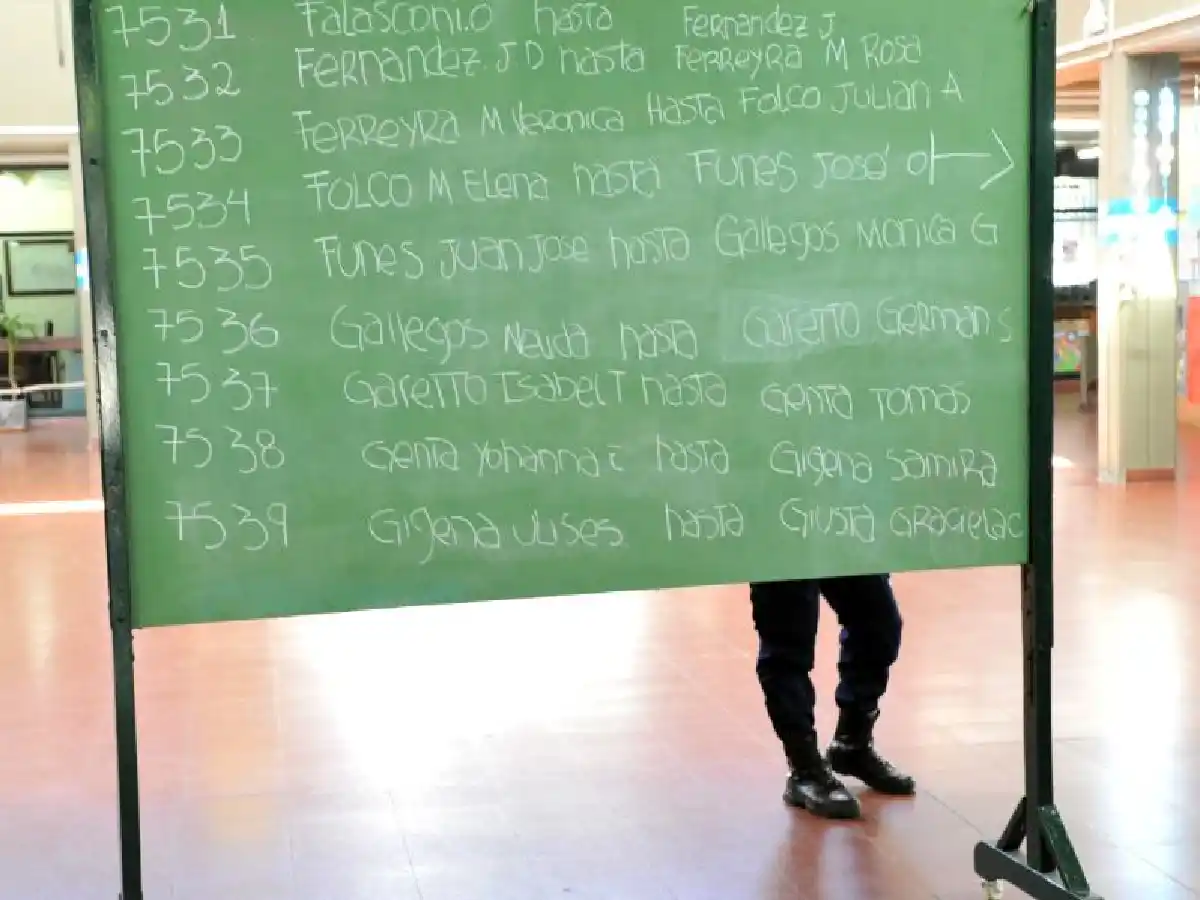 7531 Falasconi.o hasta Fernandez J
7532 Fernandez. J D hasta Ferreyra M Rosa
7533 Ferreyra M Veronica Hasta Folco Julian A
7534 Folco M Elena hasta Funes José
7535 Funes Juan Jose hasta Gallegos Monica G
7536 Gallegos Neuda hasta Garetto German S
7537 Garetto Isabel T hasta Genta Tomás
7538 Genta Yohanna E hasta Gigena Samira
7539 Gigena Ulises hasta Giusta Graciela C